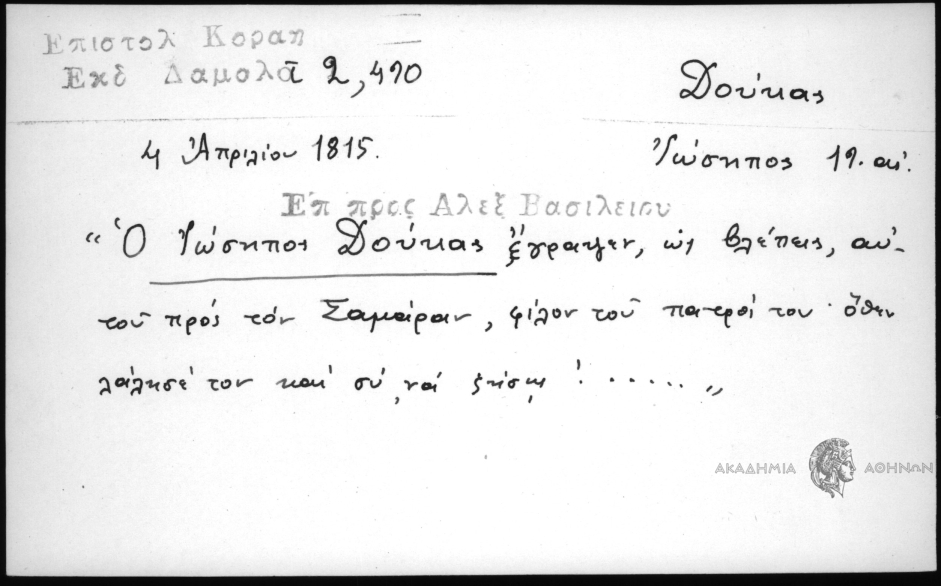 Επιστολ Κοραη
Εκδ Δαμαλᾶ 2,490
Δούκας
4 Ἀπριλίου 1815.
Ἰώσηπος 19. αἰ.
Επ προς Αλεξ Βασιλειου
"Ὁ Ἰώσηπος Δούκας ἔγραψεν, ὡς βλέπεις, αὐ-
τοῦ πρός τόν Σαμαίραν, φίλον τοῦ πατρός του· ὅθεν
λάλησέ τον καί σύ, νά ζήσῃς! ......"
ΑΚΑΔΗΜΙΑ ΑΘΗΝΩΝ